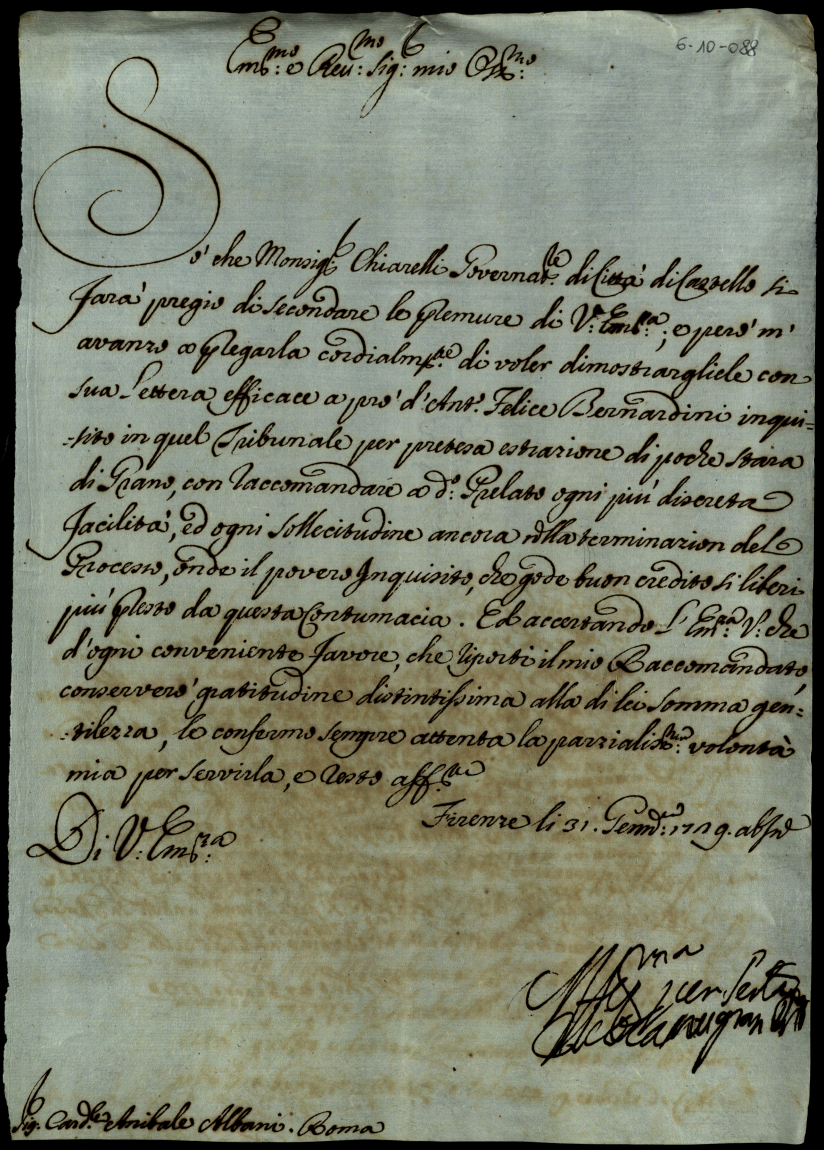 6-10-088
Em̃o: e Reu:mo Sig: mio Oss:mo
Sò che Monsig:r Chiarelli Governat:re di Città di Castello si
farà pregio di secondare le premure di V: Em:za; e però m'
avanzo a pregarla cordialm:te di voler dimostrargliele con
sua Lettera efficace a prò d'Ant:o Felice Bernardini inqui=
=sito in quel Tribunale per pretesa estrazione di poche stara
di Grano, con raccomandare a d:o Prelato ogni più discreta
facilità, ed ogni sollecitudine ancora nella terminazion del
Processo, onde il povero Inquisito, che gode buon credito si liberi
più presto da questa Contumacia. Ed accertando l'Em:za V: che
d'ogni conveniente favore, che riporti il mio Raccomandato,
conserverò gratitudine distintissima alla di lei somma gen=
=tilezza, le confermo sempre attenta la parzialiss:ma volontà
mia per servirla, e resto aff:ma
Firenze li 31. Genn:o 1719. ab Inc
Di V: Em:za
Aff:ma per ser
Sig: Card:le Anibale Albani. Roma